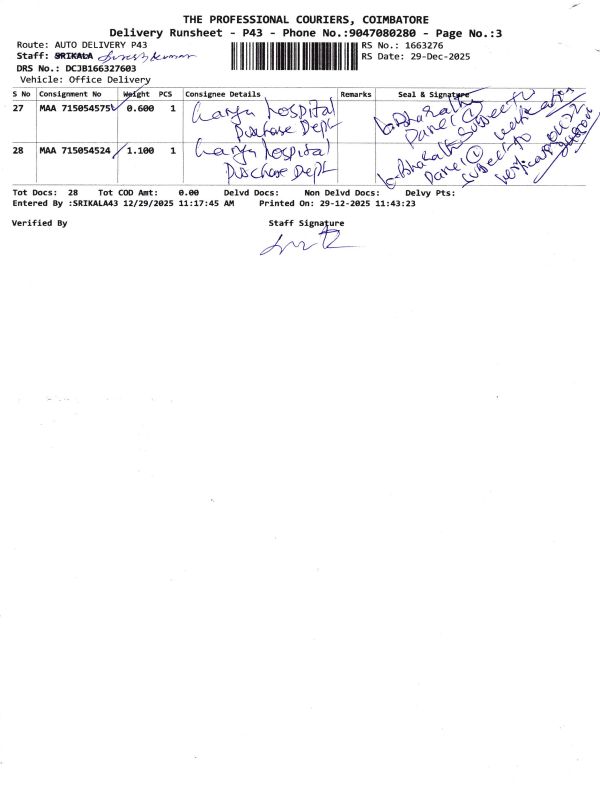 THE PROFESSIONAL COURIERS, COIMBATORE
Delivery Runsheet - P43 - Phone No.:9047080280 - Page No.:3
Route: AUTO DELIVERY P43
RS No.: 1663276
Staff: SRIKALA Sureshkumar
RS Date: 29-Dec-2025
DRS No.: DCJB166327603
Vehicle: Office Delivery
S No Consignment No Weight PCS Consignee Details Remarks Seal & Signature
27 MAA 715054575 0.600 1 hospital
Purchase Dept
28 MAA 715054524 1.100 1 hospital
Purchase Dept
Bharathi
subject to
verification
Bharathi
subject to
verification
Tot Docs: 28 Tot COD Amt: 0.00 Delvd Docs: Non Delvd Docs: Delvy Pts:
Entered By :SRIKALA43 12/29/2025 11:17:45 AM Printed On: 29-12-2025 11:43:23
Verified By Staff Signature